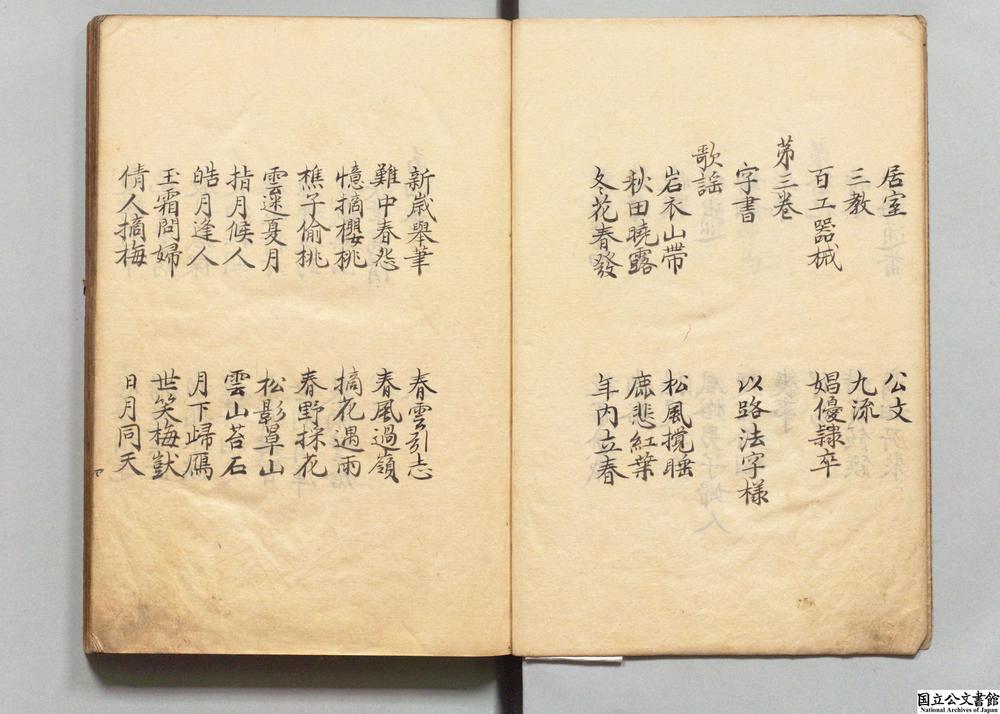 居室　公文
三教　九流
百工器械　娼優隷卒
第三巻
字書　以路法字様
歌謡
岩衣山帶　松風攪睡
秋田曉露　鹿悲紅葉
冬花春發　年内立春
新歳舉筆　春雲引志
難中春怨　春風過嶺
憶摘櫻桃　摘花遇雨
樵子偷桃　春野採花
雲遮夏月　松影暈山
指月候人　雲山苔石
皓月逢人　月下歸鴈
玉霜問婦　世笑梅獃
倩人摘梅　日月同天
国立公文書館
National Archives of Japan